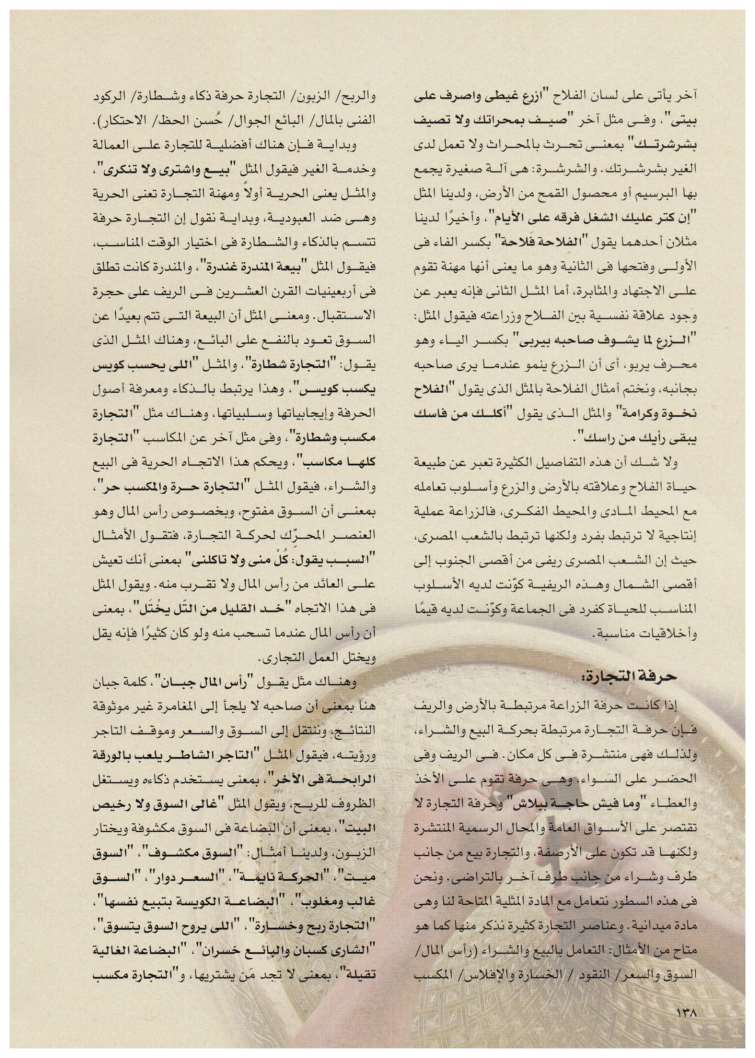 آخر يأتى على لسان الفلاح "ازرع غيطى واصرف على
بيتى"، وفــى مثل آخر "صيــف بمحراتك ولا تصيف
بشرشرتــك" بمعنــى تحــرث بالمحــراث ولا تعمل لدى
الغير بشرشــرتك. والشرشــرة: هى آلــة صغيرة يجمع
بها البرسيم أو محصول القمح من الأرض، ولدينا المثل
"إن كتر عليك الشغل فرقه على الأيام"، وأخيرًا لدينا
مثلان أحدهما يقول "الفِلاحة فَلاحة" بكسر الفاء فى
الأولــى وفتحها فى الثانية وهو ما يعنى أنها مهنة تقوم
علــى الاجتهاد والمثابرة، أما المثــل الثانى فإنه يعبر عن
وجود علاقة نفســية بين الفــلاح وزراعته فيقول المثل:
"الــزرع لما يشــوف صاحبه بيربى" بكســر اليــاء وهو
محــرف يربو، أى أن الــزرع ينمو عندمــا يرى صاحبه
بجانبه، ونختم أمثال الفلاحة بالمثل الذى يقول "الفلاح
نخــوة وكرامة" والمثل الــذى يقول "أكلــك من فاسك
يبقى رأيك من راسك".
ولا شــك أن هذه التفاصيل الكثيرة تعبر عن طبيعة
حيــاة الفلاح وعلاقته بالأرض والزرع وأســلوب تعامله
مع المحيط المــادى والمحيط الفكــرى، فالزراعة عملية
إنتاجية لا ترتبط بفرد ولكنها ترتبط بالشعب المصرى،
حيث إن الشــعب المصرى ريفى من أقصى الجنوب إلى
أقصى الشــمال وهــذه الريفيــة كوّنت لديه الأســلوب
المناســب للحيــاة كفرد فى الجماعة وكوّنــت لديه قيمًا
وأخلاقيات مناسبة.
حرفة التجارة:
إذا كانــت حرفة الزراعة مرتبطــة بالأرض والريف
فــإن حرفــة التجــارة مرتبطة بحركــة البيع والشــراء،
ولذلــك فهى منتشــرة فــى كل مكان. فــى الريف وفى
الحضــر على الســواء، وهــى حرفة تقوم علــى الأخذ
والعطــاء "وما فيش حاجــة ببلاش" وحرفة التجارة لا
تقتصر على الأســواق العامة والمحال الرسمية المنتشرة
ولكنهــا قد تكون على الأرصفة، والتجارة بيع من جانب
طرف وشــراء من جانب طرف آخــر بالتراضى. ونحن
فى هذه السطور نتعامل مع المادة المثلية المتاحة لنا وهى
مادة ميدانية. وعناصر التجارة كثيرة نذكر منها كما هو
متاح من الأمثال: التعامل بالبيع والشــراء (رأس المال/
السوق والسعر/ النقود / الخسارة والإفلاس/ المكسب
والربح/ الزبون/ التجارة حرفة ذكاء وشــطارة/ الركود
الفنى بالمال/ البائع الجوال/ حُسن الحظ/ الاحتكار).
وبدايــة فــإن هناك أفضليــة للتجارة علــى العمالة
وخدمــة الغير فيقول المثل "بيــع واشترى ولا تنكرى"،
والمثــل يعنى الحريــة أولاً ومهنة التجــارة تعنى الحرية
وهــى ضد العبوديــة، وبدايــة نقول إن التجــارة حرفة
تتســم بالذكاء والشــطارة فى اختيار الوقت المناســب،
فيقــول المثل "بيعة المندرة غندرة"، والمندرة كانت تطلق
فى أربعينيات القرن العشــرين فــى الريف على حجرة
الاســتقبال. ومعنــى المثل أن البيعة التــى تتم بعيدًا عن
الســوق تعــود بالنفــع على البائــع، وهناك المثــل الذى
يقــول: "التجارة شطارة"، والمثــل "اللى يحسب كويس
يكسب كويســن"، وهذا يرتبط بالــذكاء ومعرفة أصول
الحرفة وإيجابياتها وســلبياتها، وهنــاك مثل "التجارة
مكسب وشطارة"، وفى مثل آخر عن المكاسب "التجارة
كلهــا مكاسب"، ويحكم هذا الاتجــاه الحرية فى البيع
والشــراء، فيقول المثــل "التجارة حــرة والمكسب حر"،
بمعنــى أن الســوق مفتوح، وبخصــوص رأس المال وهو
العنصــر المحــرّك لحركــة التجــارة، فتقــول الأمثــال
"السبــب يقول: كُلْ منى ولا تاكلنى" بمعنى أنك تعيش
علــى العائد من رأس المال ولا تقــرب منه. ويقول المثل
فى هذا الاتجاه "خــد القليل من التّل يخْتَل"، بمعنى
أن رأس المال عندما تسحب منه ولو كان كثيرًا فإنه يقل
ويختل العمل التجارى.
وهنــاك مثل يقــول "رأس المال جبــان"، كلمة جبان
هنا بمعنى أن صاحبه لا يلجأ إلى المغامرة غير موثوقة
النتائــج، وننتقل إلى الســوق والسعر وموقــف التاجر
ورؤيتــه، فيقول المثــل "التاجر الشاطــر يلعب بالورقة
الرابحــة فى الآخر"، بمعنى يســتخدم ذكاءه ويســتغل
الظروف للربــح، ويقول المثل "غالى السوق ولا رخيص
البيت"، بمعنى أن البضاعة فى السوق مكشوفة ويختار
الزبــون، ولدينــا أمثــال: "السوق مكشــوف"، "السوق
ميــت"، "الحركــة نايمــة"، "السعــر دوار"، "الســوق
غالب ومغلوب"، "البضاعــة الكويسة بتبيع نفسها"،
"التجارة ربح وخســارة"، "اللى يروح السوق يتسوق"،
"الشارى كسبان والبائــع خسران"، "البضاعة الغالية
تقيلة"، بمعنى لا تجد مَن يشتريها، و"التجارة مكسب
١٣٨